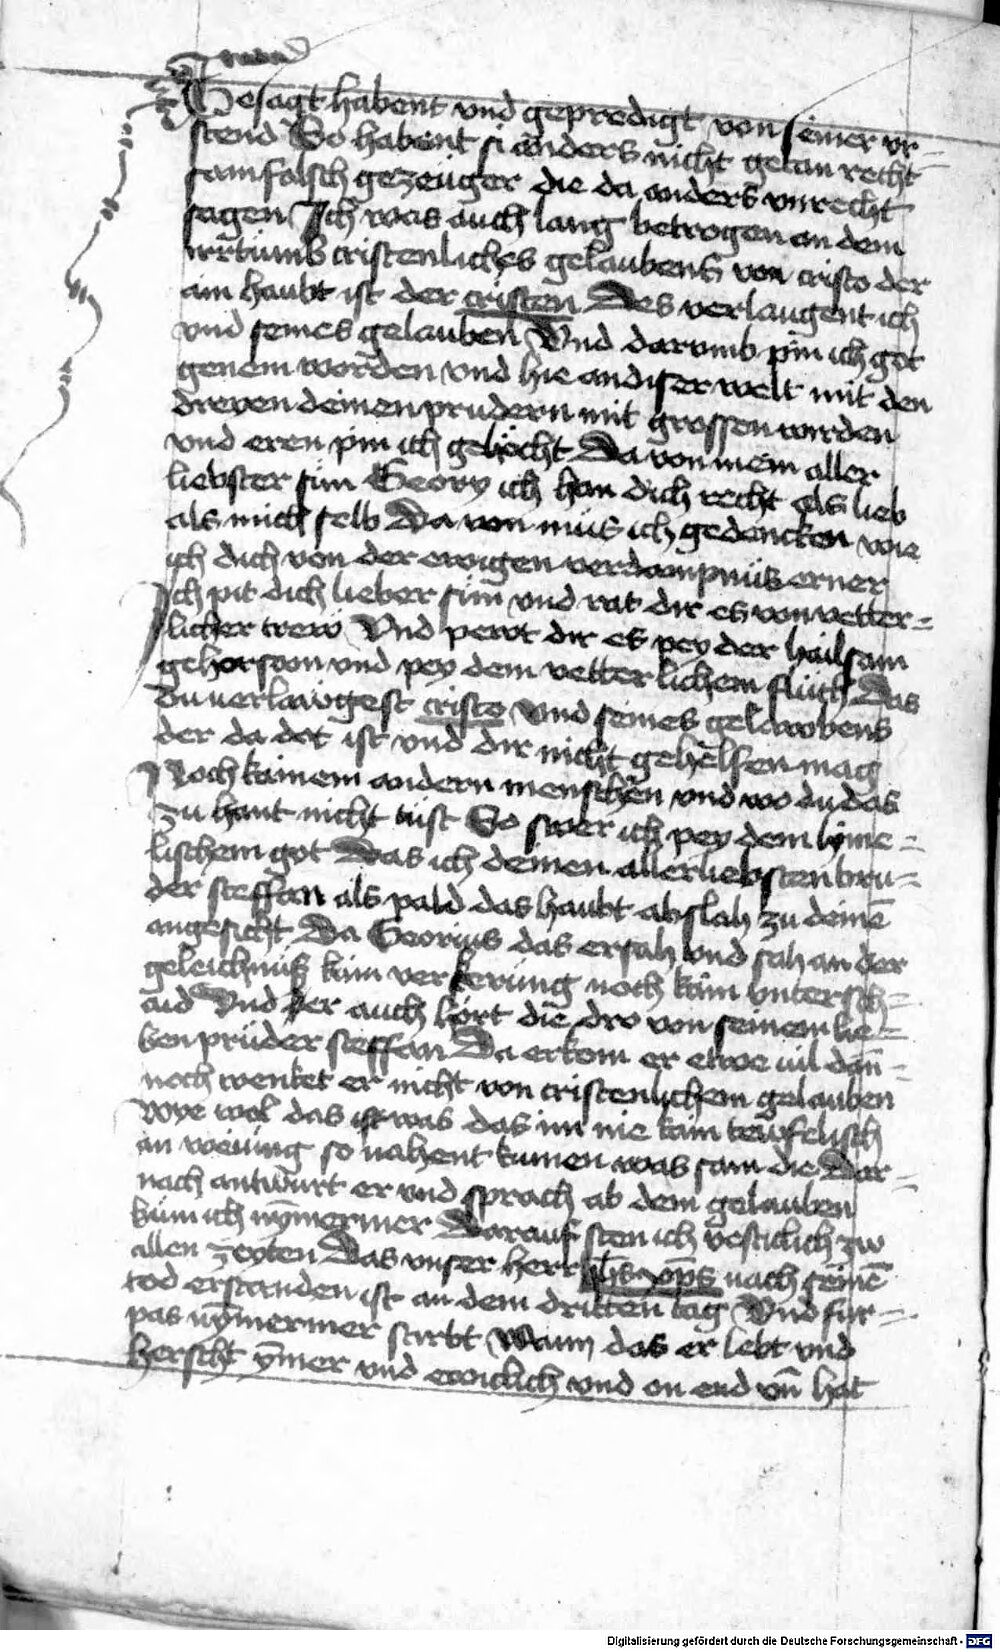 Gesagt habent vnd gepredigt von seiner vr=
stend So habent si anders nicht getan recht
sam falsch gezeüger die da anders vnrecht
sagen Ich was auch lang betrogen an dem
irrtumb cristenliches gelaubens von cristo der
ain haubt ist der cristen Des verlaugent ich
vnd seines gelauben Vnd darumb pin ich got
genem worden vnd hie an diser welt mit den
dreyen deinen prudern mit grossen wirden
vnd eren pin ich gehöcht Da von mein aller
liebster sün Geory ich han dich recht als lieb
als mich selb Da von müs ich gedencken wie
ich dich von der ewigen verdampnüs erner
Ich pit dich lieber sün vnd rat dir es von vetter=
licher trew Vnd pewt dir es pey der hailsam
gehorsam vnd pey dem vetterlichem flüch Das
du verlawgest cristo vnd seines gelawbens
der da dot ist vnd dir nicht gehelfen mag
Noch kainem andern menschen vnd wo du das
zu hant nicht tüst So swer ich pey dem hyme=
lischem got Das ich deinen allerliebsten bru=
der steffan als pald das haubt abslah zu deinē
angesicht Da Georius das ersah vnd sah an der
geleichnüs kain verkerüng noch kain vntersch=
aid Vnd er auch hört die dro von seinem lie=
ben prüder steffan Da erkom er etwe uil dañ=
noch wenket er nicht von cristenlichem gelauben
Wye wol das ist was das im nie kain tewfelisch
an weiüng so nahent kumen was sam die Dar=
nach antwurt er vnd sprach ab dem gelauben
küm ich nȳmermer Darauf sten ich vestiklich zw
allen zeyten Das vnser herr ihs xp̄s nach seinē
tod erstanden ist an dem dritten tag Vnd für=
pas nȳmermer stirbt Wann das er lebt vnd
herscht ȳmer vnd ewiclich vnd on end vn̄ hat
Digitalisierung gefördert durch die Deutsche Forschungsgemeinschaft - DFG